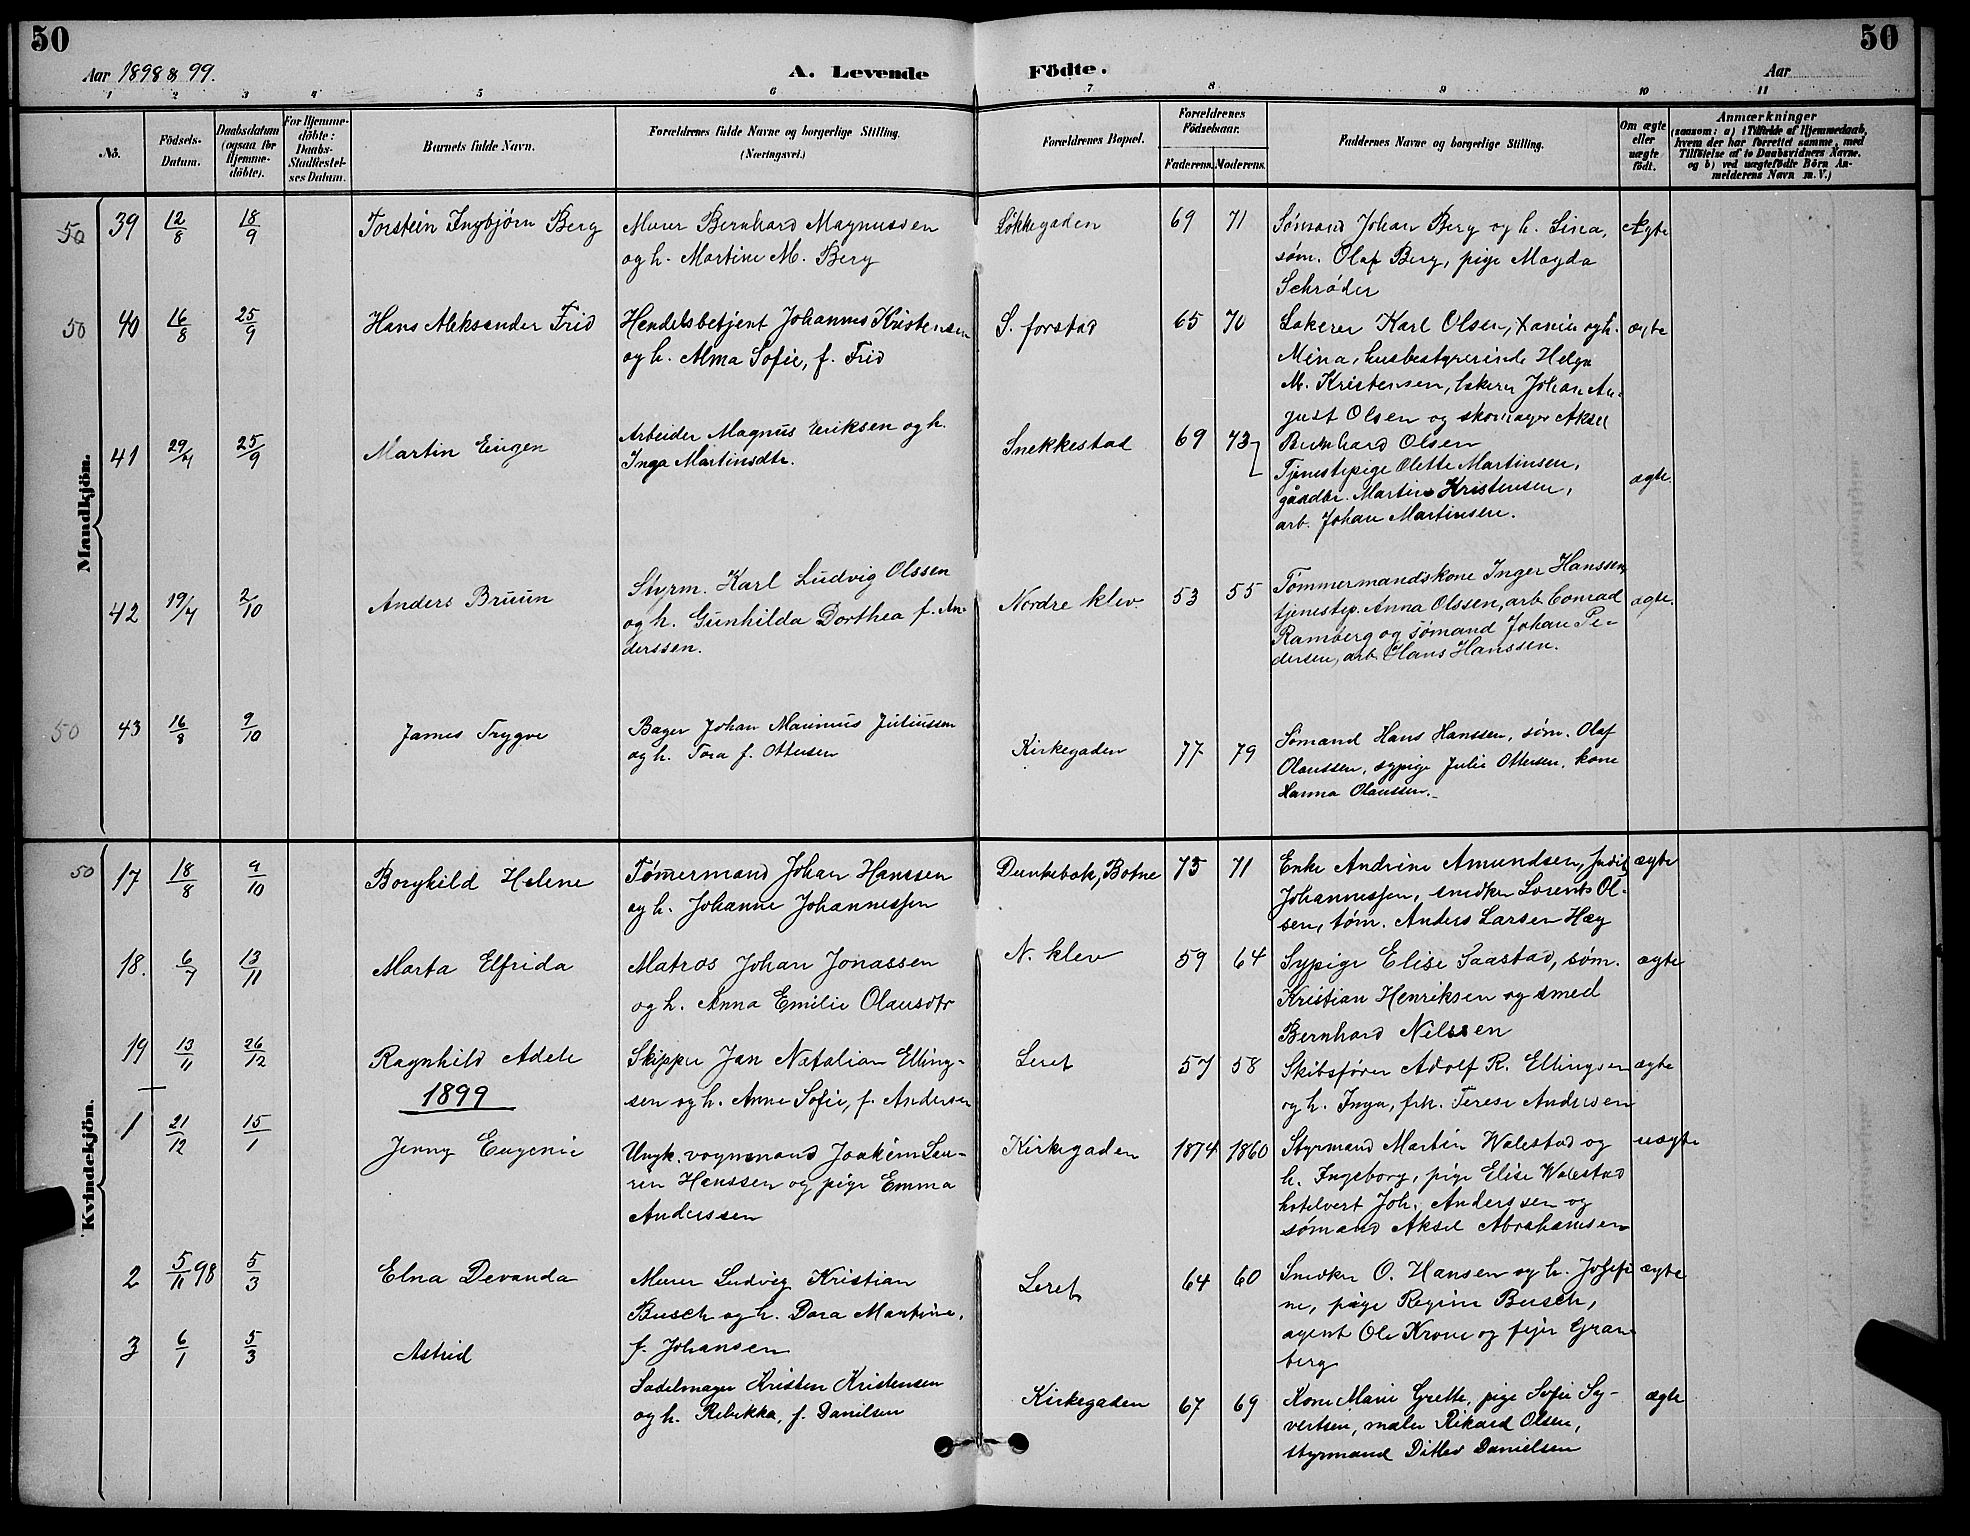 50
50
Aar 1898 & 99.
A. Levende Födte.
Aar
1 2 3 4 5 6 7 8 9 10 11
No.
Födsels-Datum.
Daabsdatum (ogsaa for Hjemme-döbte).
For Hjemme-döbte: Daabs-Stadfæstel-ses Datum.
Barnets fulde Navn.
Forældrenes fulde Navne og borgerlige Stilling.
(Næringsvei.)
Forældrenes Bopæl.
Forældrenes Födselsaar.
Faderens. Moderens.
Faddernes Navne og borgerlige Stilling.
Om ægte eller uægte födt.
Anmærkninger
(saasom: a) i Tilfælde af Hjemmedaab,
hvem der har forrettet samme, med
Tilföielse af to Daabsvidners Navne.
og b) ved uægtefödte Börn An-
melderens Navn m. V.)
Mandkjön.
50 39 12/8 18/9 Torstein Ingbjørn Berg
Murer Bernhard Magnussen
og h. Martine M. Berg
Løkkegaden 69 71
Sømand Johan Berg og h. Lina,
søm. Olaf Berg, pige Magda
Schrøder
Ægte
50 40 16/8 25/9 Hans Aleksander Frid
Handelsbetjent Johannes Kristensen
og h. Alma Sofie, f. Frid
S. forstad 65 70
Lakerer Karl Olsen, og h.
Mina, husbestyrerinde Helga
M. Kristensen, lakerer Johan Au-
gust Olsen og skomager Aksel
Bernhard Olsen
ægte
41 25/9 Martin Eugen
Arbeider Magnus Eriksen og h.
Inga Martinsdtr.
Snekkestad 69 73
Tjenestepige Olette Martinsen,
gaardbr. Martin Kristensen,
arb. Johan Martinsen.
ægte.
42 19/7 2/10 Anders Bruun
Styrm. Karl Ludvig Olssen
og h. Gunhilda Dorthea f. An-
derssen.
Nordre klev. 53 55
Tømmermandskone Inger Hanssen,
tjenestep. Anna Olssen, arb. Conrad
Ramberg og sømand Johan Pe-
dersen, arb. Hans Hanssen.
ægte.
50 43 16/8 9/10 James Trygve
Bager Johan Marinius Juliussen
og h. Tora f. Ottersen
Kirkegaden 77 79
Sømand Hans Hanssen, søm. Olaf
Olaussen, sypige Julie Ottersen, kone
Hanna Olaussen.
Kvindekjön.
50 17 18/8 9/10 Borghild Helene
Tømmermand Johan Hanssen
og h. Johanne Johannessen
Dunkebæk, Botne 75 71
Enke Andrine Amundsen, Judit
Johannessen, snedker Lorents Ol-
sen, tøm. Anders Larsen Hæg
ægte
18. 6/7 13/11 Marta Elfrida
Matros Johan Jonassen
og h. Anna Emilie Olausdtr
N. klev 59 64
Sypige Elise Saastad, søm.
Kristian Henriksen og smed
Bernhard Nilssen
ægte
19 13/11 26/12 Ragnhild Adele
Skipper Jan Natalian Elling-
sen og h. Anne Sofie, f. Andersen
Leret 57 58
Skibsfører Adolf R. Ellingsen
og h. Inga, frk. Terese Andersen
ægte
1899
1 21/12 15/1 Jenny Eugenie
Ungk. vognmand Joakim Lau-
ren Hanssen og pige Emma
Anderssen
Kirkegaden 1874 1860
Styrmand Martin Walestad og
h. Ingeborg, pige Elise Walestad
hotelvert Joh. Anderssen og
sømand Aksel Abrahamsen
uægte
2 5/11 98 5/3 Elna Devanda
Murer Ludvig Kristian
Busch og h. Dora Martine,
f. Johansen
Leret 64 60
Snedker O. Hansen og h. Josefi-
ne, pige Regine Busch,
agent Ole Krone og fejer Gran-
berg
ægte
3 6/1 5/3 Astrid
Sadelmager Kristen Kristensen
og h. Rebekka, f. Danilsen
Kirkegaden 67 69
Kone Marie Grette, pige Sofie Sy-
vertsen, maler Rikard Olsen,
styrmand Ditlev Danielsen
ægte